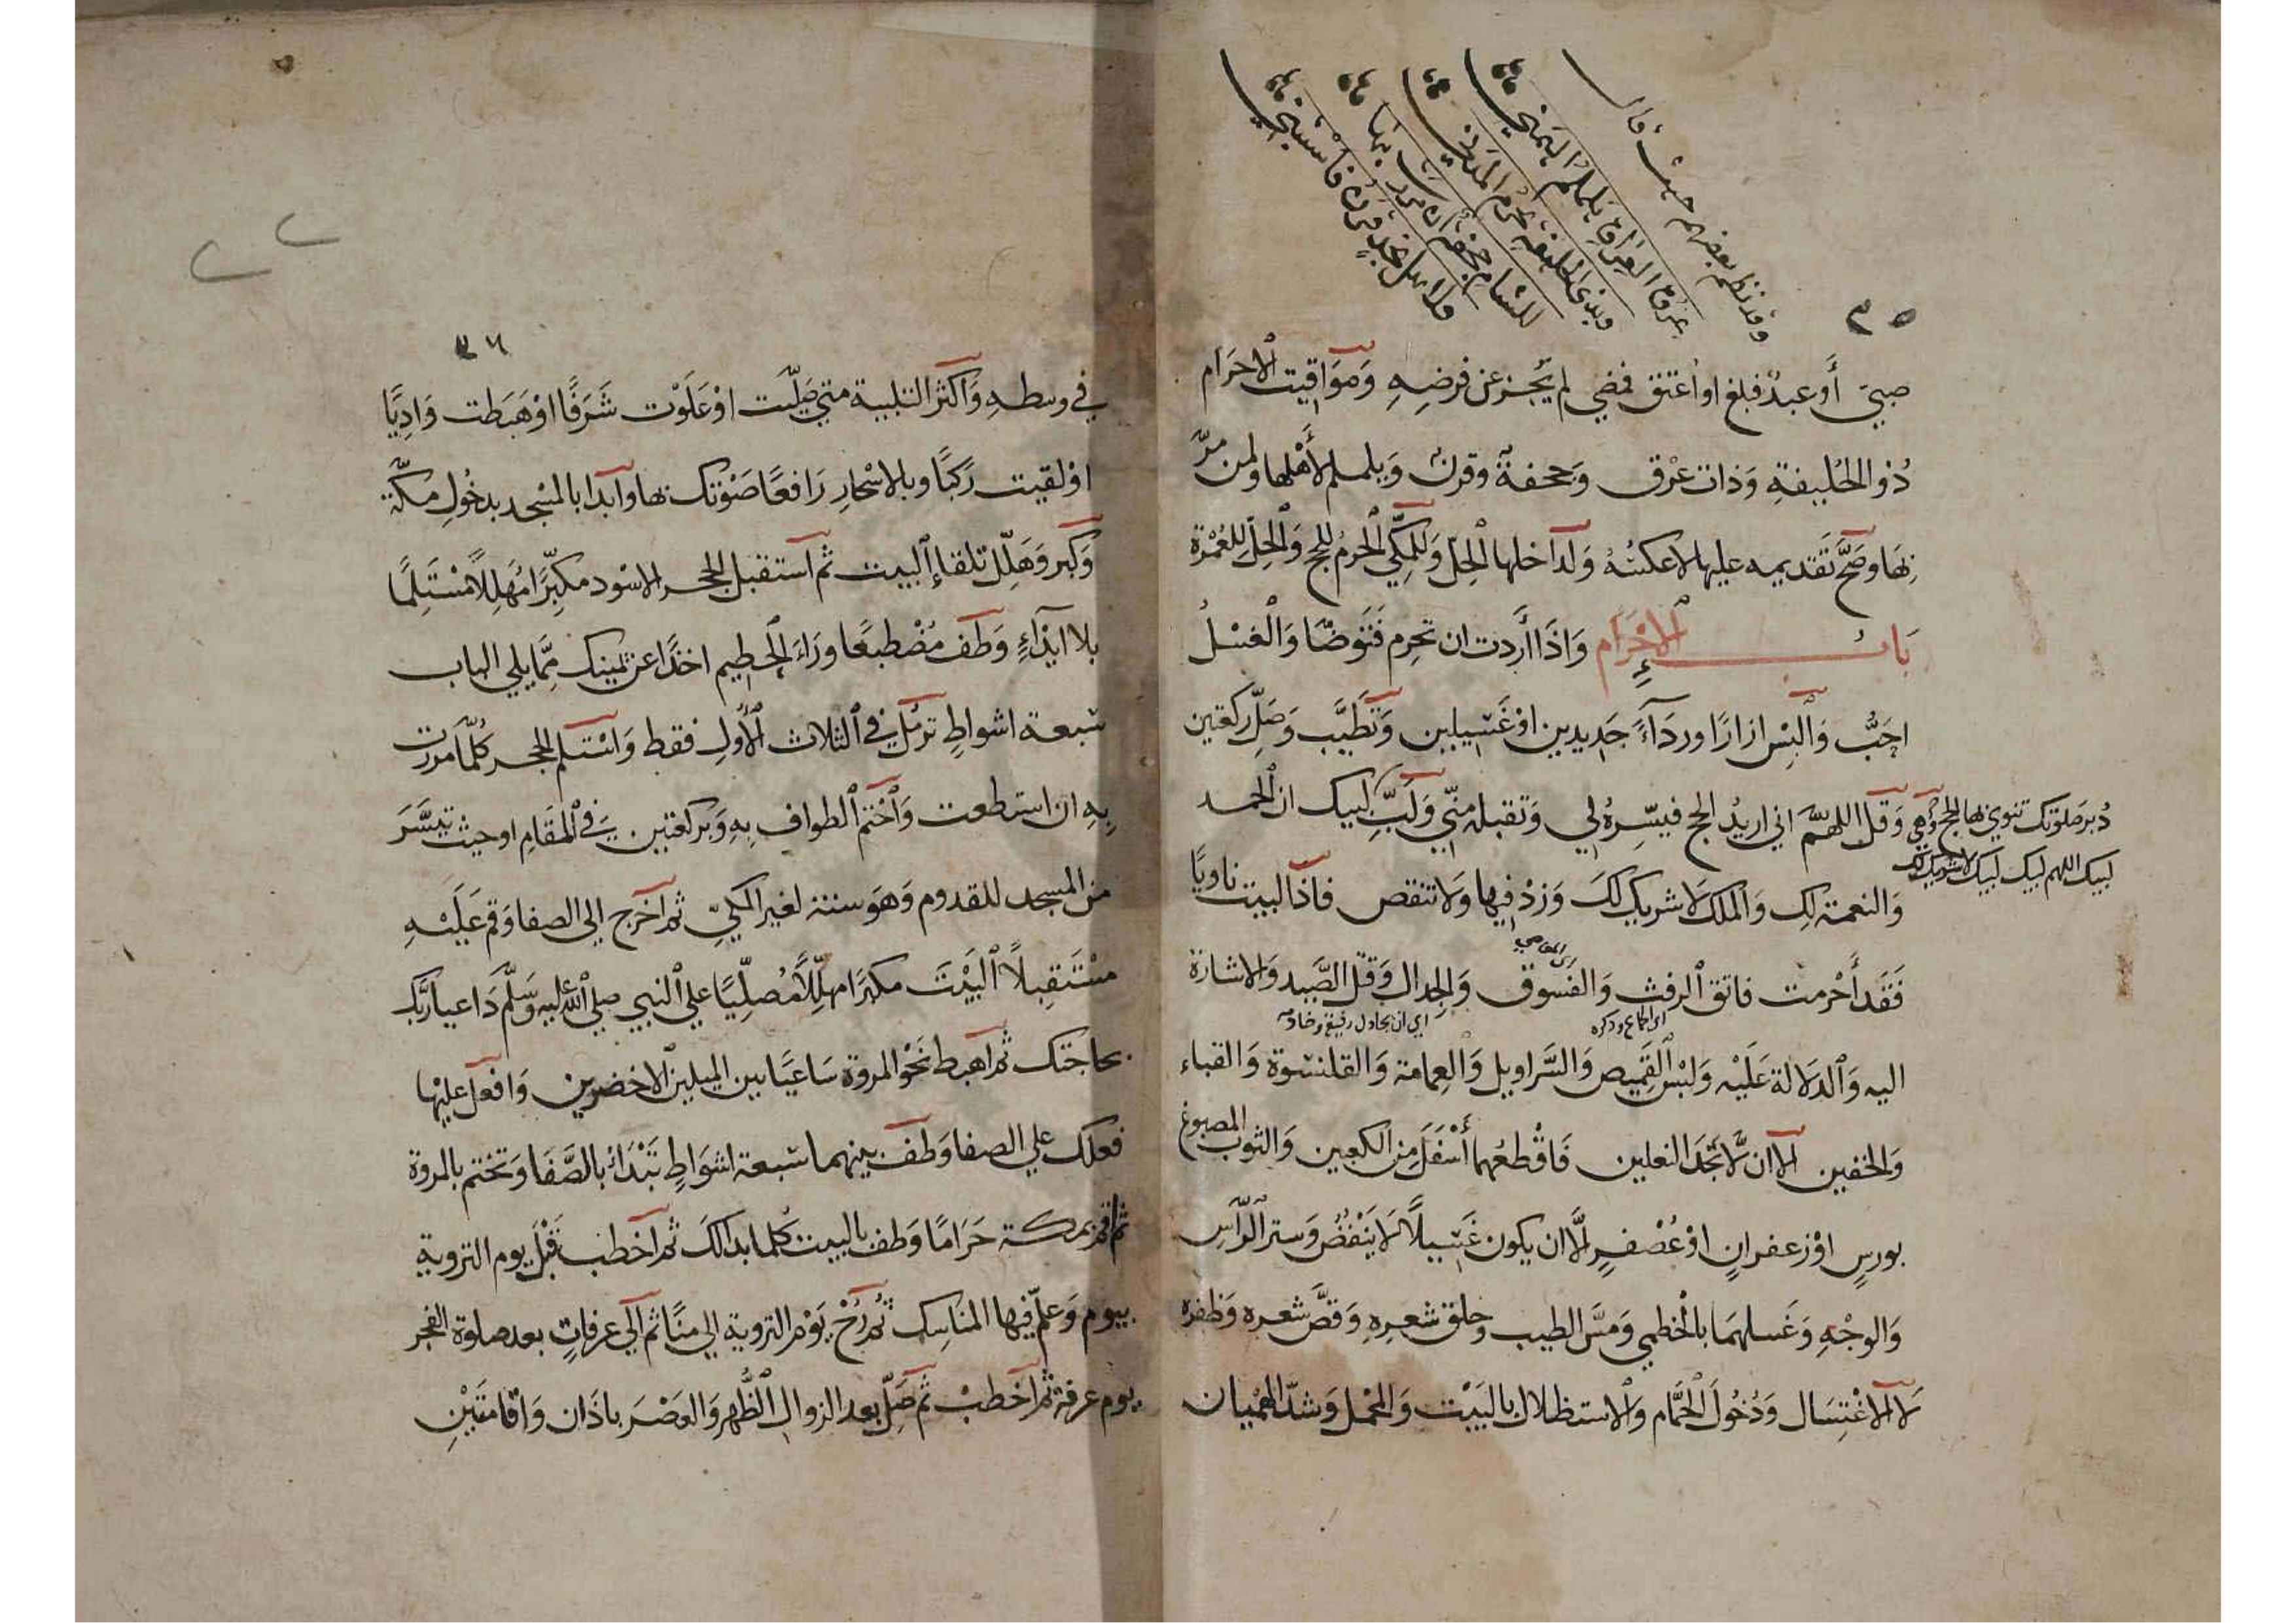 وقد نظم بعضهم حيث قال
عرق العراق يلملم اليمني
وبذي الحليفة يحرم المدني
للشام جحفة ان مررت بها
ولاهل نجد قرن فاستبني
٣٥
صبيّ أو عبدٌ فبلغ او اعتق فمضي لم يُجز عن فرضِهِ وَمَوَاقيت الاحرَام
ذُو الحُليفةِ وَذات عِرْق وَجحفةٌ وقرنٌ وَيلملم لأَهْلها ولمن مرّ
بِهَا وصَحَّ تَقديمه عليها لا عكسُهُ وَلداخلها الحِلّ وَللمكّي الحَرمُ للحج وَالحِلّ للعُمْرة
بَابُ الاِحْرَام وَاذَا أردت ان تحرم فَتَوضّا وَالغسْلُ
احَبُّ وَالبس ازارًا وردَآءً جَديدين اوْ غَسيلين وَتَطيَّب وَصَلّ ركعتين
دُبرَ صَلوتك تنوي بها الحج وَهي وَقل اللهمَّ اني اريدُ الحج فيسّرهُ لي وَتقبله منّي وَلَبِّ لبيك ان الحمد
لبيك اللهم لبيك لبيك لا شريك لك
وَالنعمة لك وَالملك لَا شريك لكَ وَزدْ فيها وَلا تنقص فاذا لبيت ناويًا
فَقَد أَحْرمت فاتق الرفث وَالفسُوق وَالجدال وَقتل الصَّيد وَالاشارة
اي المعاصي
اي الجماع وذكره
اي ان يجادل رفيقه وخادمه
اليه وَالدلالة عَلَيْه وَلبْس القَميص وَالسَّراويل وَالعِمامة وَالقلنسوة وَالقباء
وَالخفين الا ان لَّا تجدَ النعلين فَاقْطعْهما أَسْفَلَ مِن الكعبين وَالثوب المصبوغ
بورسٍ اوْ زعفرانٍ اوْ عُصْفرٍ الَّا ان يكون غَسيلاً لَا يَنْفُضُ وَستر الرّأس
وَالوجْهِ وَغَسلهمَا بالخطمي وَمسَّ الطيب وحلق شعرِهِ وَقصَّ شعره وَظفره
لَا الاغْتِسَال وَدُخُولَ الحَمَّام وَالاستظلال بالبَيْت وَالمحْمل وَشدّ الهمْيان
٣٦
في وسطهِ وَاكثر التلبية متي صَلّيت اوْ عَلَوْت شَرَفًا اوْ هَبَطت وَادِيًا
اوْ لقيت رَكبًا وبالاسْحارِ رَافعًا صَوْتك بها وابدا بالمسْجد بدخُولِ مكّة
وَكبّر وَهَلّل تلقاءَ البيت ثم استقبل الحجر الاسْود مكبِّرًا مُهلِلًا مُسْتَلِمًا
بلا ايذآءٍ وَطف مُضْطبعًا ورَاءَ الحَطيم اخذًا عن يمينك مِمَّا يلي الباب
سَبعة اشواطٍ ترمُل في الثلاث الأُولِ فقط وَاستلم الحجر كُلّما مررت
بِهِ ان استطعت وَاخْتم الطواف بِهِ وَبركعتين في المقَامِ او حيث تيسَّرَ
من المسجد للقدوم وَهوَ سنة لغير المكيّ ثم اخرج الي الصفا وَقم عَلَيْهِ
مسْتَقبِلاً البَيْتَ مكبّرًا مهلّلًا مُصلِّيًا علي النبي صلي الله عليه وَسَلّم دَاعيا ربّك
بحاجتك ثم اهبط نَحْو المروة سَاعيًا بين الميلين الاخضرين وَافعل عليْها
فعلك علي الصفا وَطفْ بينهما سَبعة اشوَاطٍ تَبْدَأ بالصَّفَا وَتختم بالمروة
ثم اقم بمكة حَرَامًا وَطف بالبيت كُلما بدا لكَ ثم اخطب قَبْلَ يوم التروية
بيوم وَعلّم فيها المناسِك ثم رُحْ يَوْم التروية الي منًا ثم الي عرفاتٍ بعد صلوة الفجر
يوم عرفة ثم اخطبْ ثم صَلّ بعد الزوال الظُّهر وَالعَصْرَ باذَان وَاقامتَيْنِ